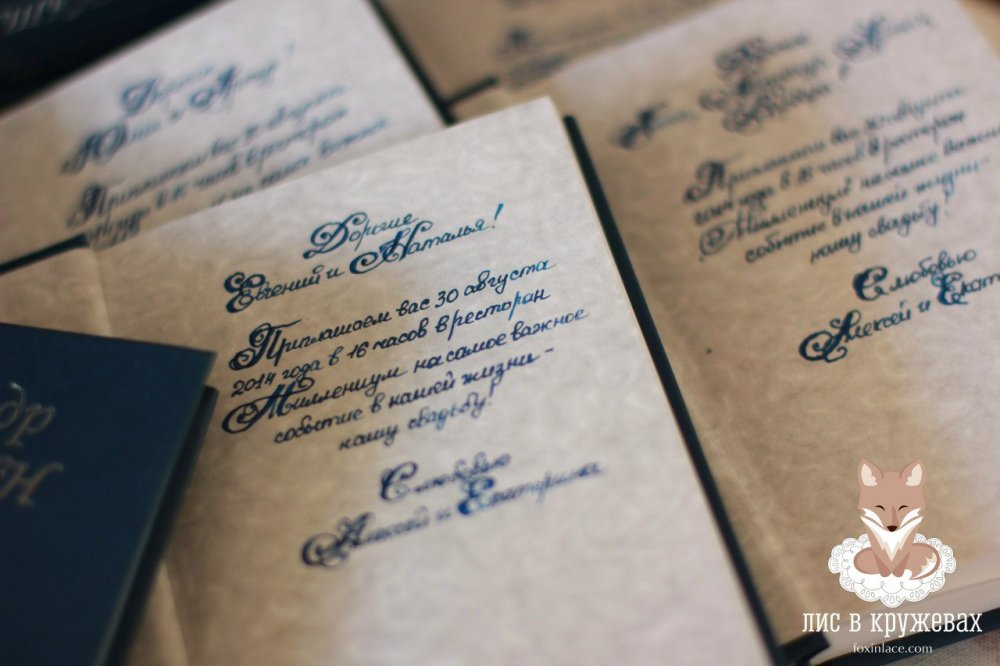 Дорогие
Евгений и Наталья!
Приглашаем вас 30 августа
2014 года в 16 часов в ресторан
Миллениум на самое важное
событие в нашей жизни -
нашу свадьбу!
С любовью
Алексей и Екатерина
Дорогие
Юлия и
Приглашаем вас 30 августа
года в 16 часов в ресторан
Приглашаем вас 30 августа
2014 года в 16 часов в ресторан
Миллениум на самое важное
событие в нашей жизни -
нашу свадьбу!
С любовью
Алексей и Екат
ЛИС В КРУЖЕВАХ
foxinlace.com